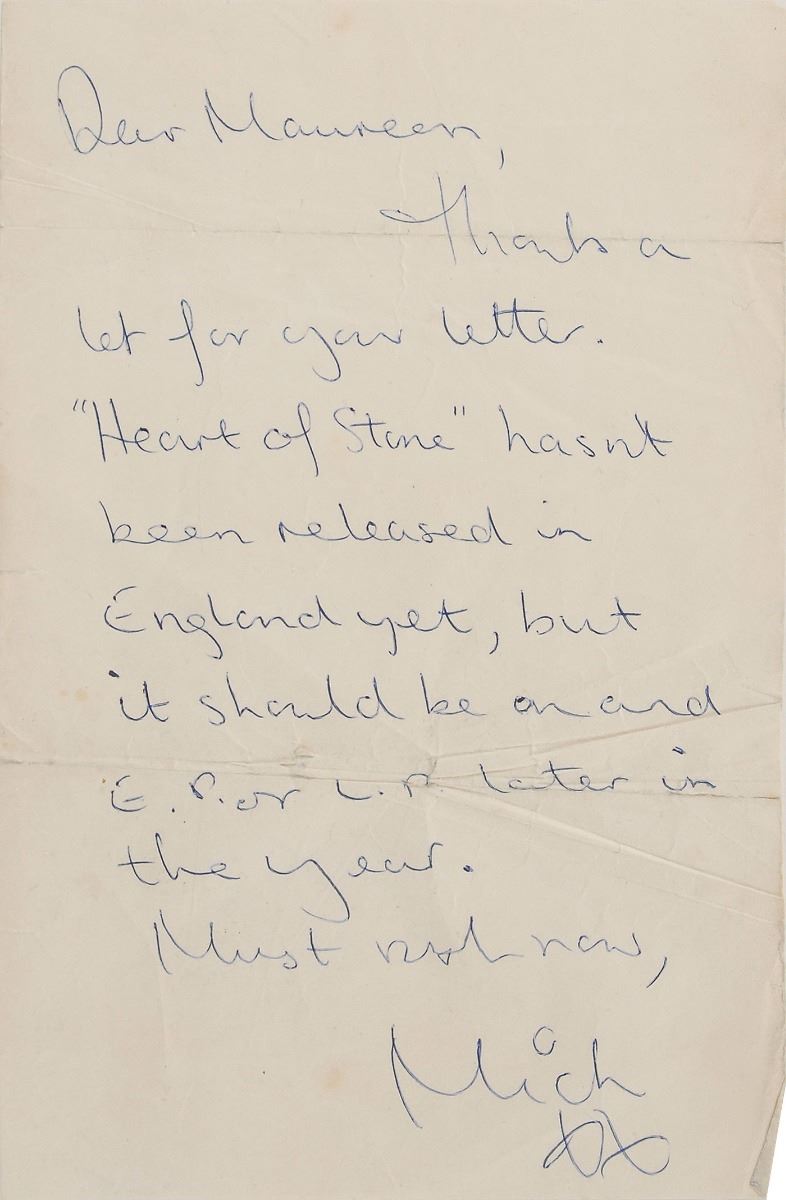 Dear Maureen,
Thanks a
lot for your letter.
"Heart of Stone" hasnt
been released in
England yet, but
it should be on and
E.P. or L.P. later in
the year.
Must rush now,
Mick
XX